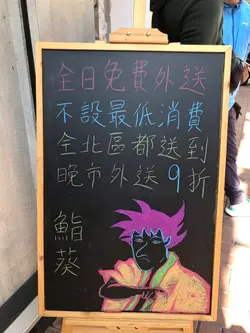 全日免費外送
不設最低消費
全北區都送到
晚市外送9折
鮨葵